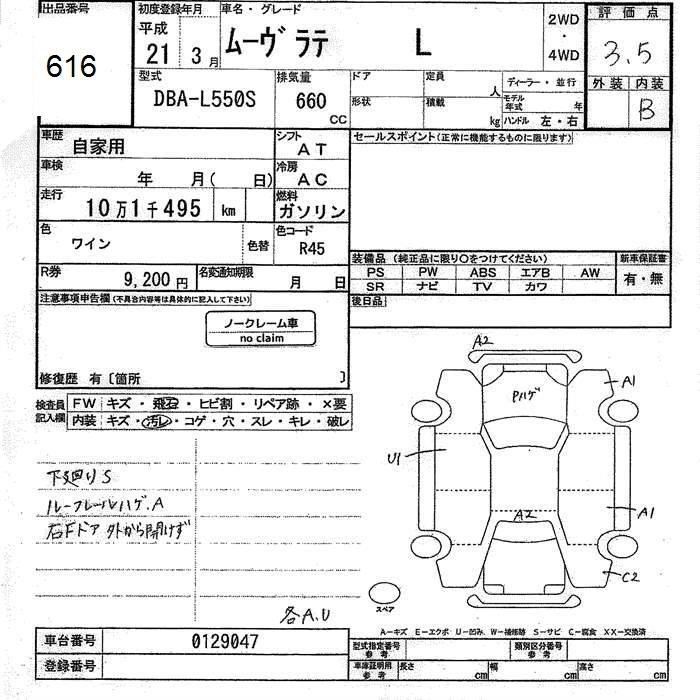 出品番号 初度登録年月 車名・グレード 2WD ・ 4WD 評価点
616 平成 21 3月 ムーヴ ラテ L 3.5
外装 内装
B
型式 DBA-L550S 排気量 660 CC ドア 定員 人 ディーラー・並行
形状 積載 kg モデル年式 年 ハンドル 左・右
車歴 自家用 シフト AT セールスポイント(正常に機能するものに限ります)
車検 年 月( 日) 冷房 AC
走行 10万1千495 km 燃料 ガソリン
色 ワイン 色替 色コード R45
装備品 (純正品に限り○をつけてください) 新車保証書
PS PW ABS エアB AW 有・無
SR ナビ TV カワ
R券 9,200円 名変通知期限 月 日 後日品
注意事項申告欄(不具合内容等は具体的に記入して下さい)
ノークレーム車
no claim
修復歴 有〔箇所 〕
検査員記入欄 FW キズ・飛石・ヒビ割・リペア跡・×要
内装 キズ・汚レ・コゲ・穴・スレ・キレ・破レ
下廻りS
ルーフレールハゲ.A
右Fドア外から開けず
各A.U
A2
Pハゲ
A1
U1
A2
A1
C2
スペア
A-キズ E-エクボ U-凹み W-補修跡 S-サビ C-腐食 XX-交換済
車台番号 0129047 型式指定番号 参考 類別区分番号 参考
登録番号 車庫証明用 参考 長さ cm 幅 cm 高さ cm